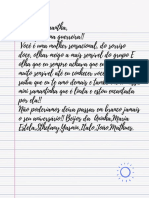 mantha,
ma guerreira!!
Você é uma mulher sensacional, do sorriso
doce, olhar meigo a mais sensível do grupo E
olha que eu sempre achava que eu que era
muito sensível até eu conhecer você
sensível que te de
mini samandinha que é linda e estou encantada
por ela!!
Não poderíamos deixar passar em branco jamais
o seu aniversário!! Beijos da Aninha, Maria
Estela, Sthefany, Yasmin, Italo, João, Matheus.